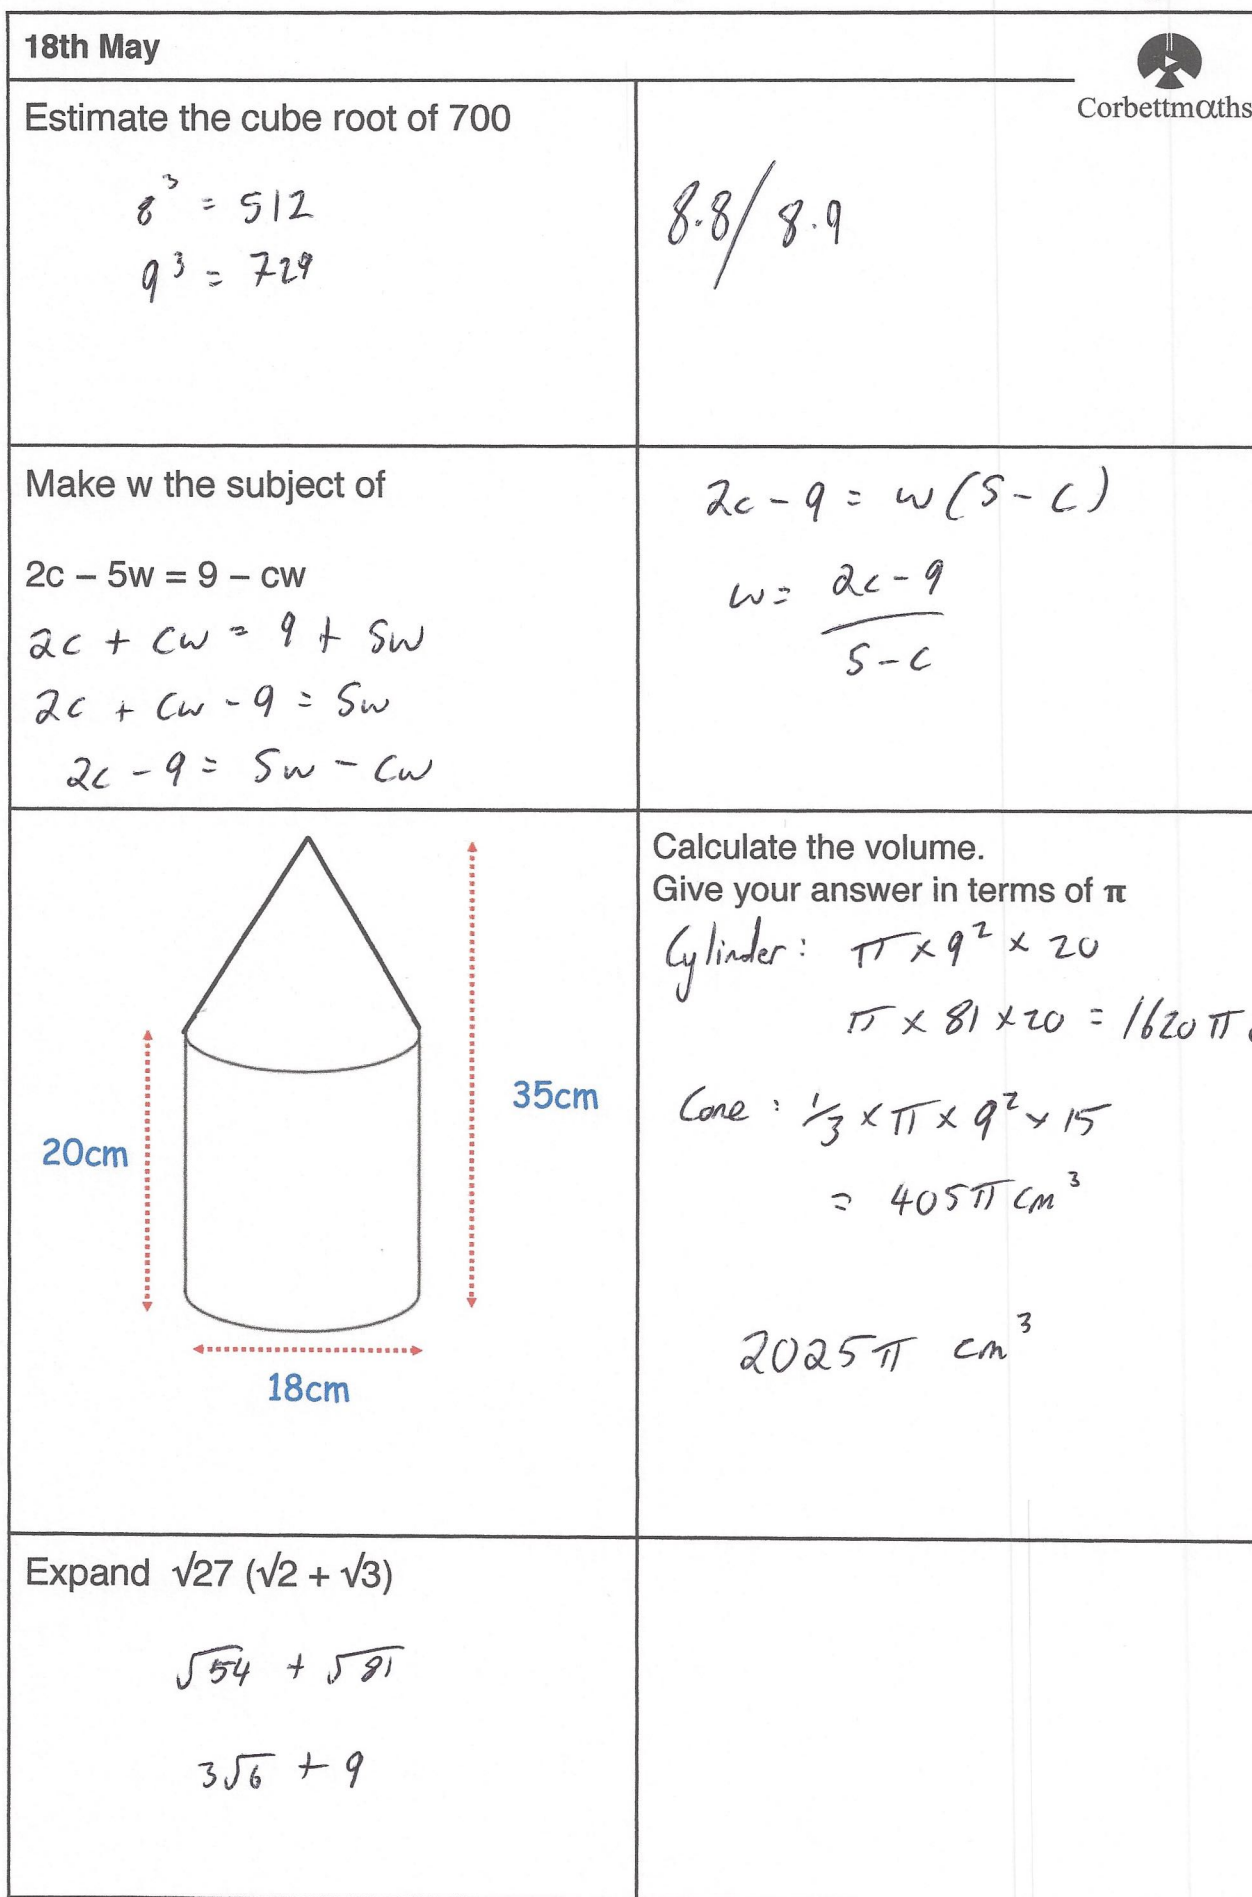 18th May
Corbettmαths
Estimate the cube root of 700
8³ = 512
9³ = 729
8.8/ 8.9
Make w the subject of
2c – 5w = 9 – cw
2c + cw = 9 + 5w
2c + cw - 9 = 5w
2c - 9 = 5w - cw
2c - 9 = w(5 - c)
w = 2c - 9
5 - c
20cm
35cm
18cm
Calculate the volume.
Give your answer in terms of π
Cylinder: π × 9² × 20
π × 81 × 20 = 1620π
Cone : 1/3 × π × 9² × 15
= 405π cm³
2025π cm³
Expand √27 (√2 + √3)
√54 + √81
3√6 + 9